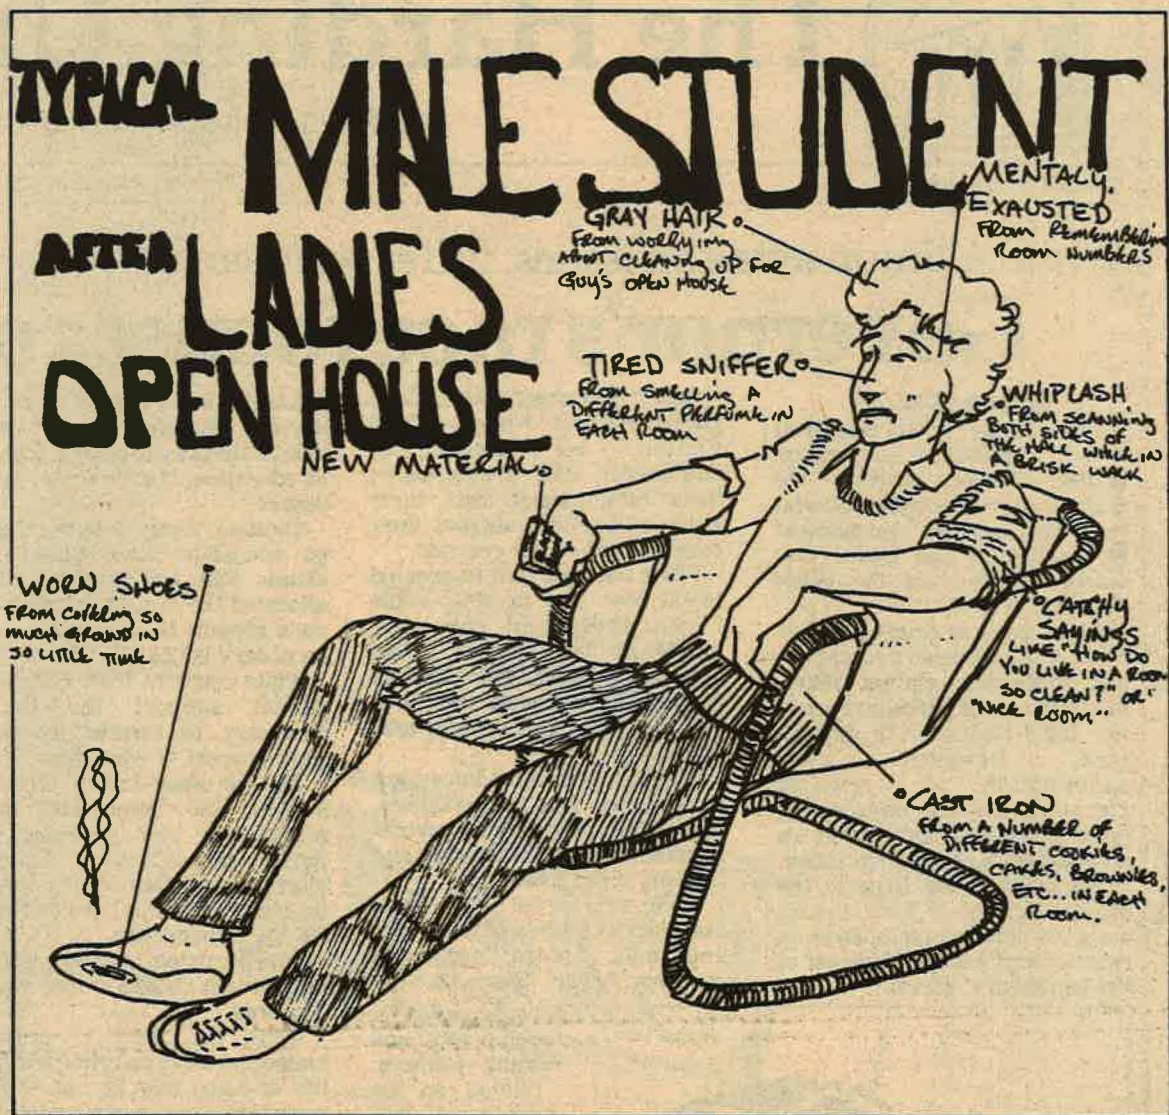 TYPICAL MALE STUDENT
AFTER LADIES
OPEN HOUSE
GRAY HAIR
FROM WORRYING
ABOUT CLEANING UP FOR
GUY'S OPEN HOUSE
MENTALY
EXAUSTED
FROM REMEMBERING
ROOM NUMBERS
TIRED SNIFFER
FROM SMELLING A
DIFFERENT PERFUME IN
EACH ROOM
WHIPLASH
FROM SCANNING
BOTH SIDES OF
THE HALL WHILE IN
A BRISK WALK
NEW MATERIAL
WORN SHOES
FROM COVERING SO
MUCH GROUND IN
SO LITTLE TIME
CATCHY
SAYINGS
LIKE "HOW DO
YOU LIVE IN A ROOM
SO CLEAN?" OR
"NICE ROOM"
CAST IRON
FROM A NUMBER OF
DIFFERENT COOKIES,
CAKES, BROWNIES,
ETC.. IN EACH
ROOM.